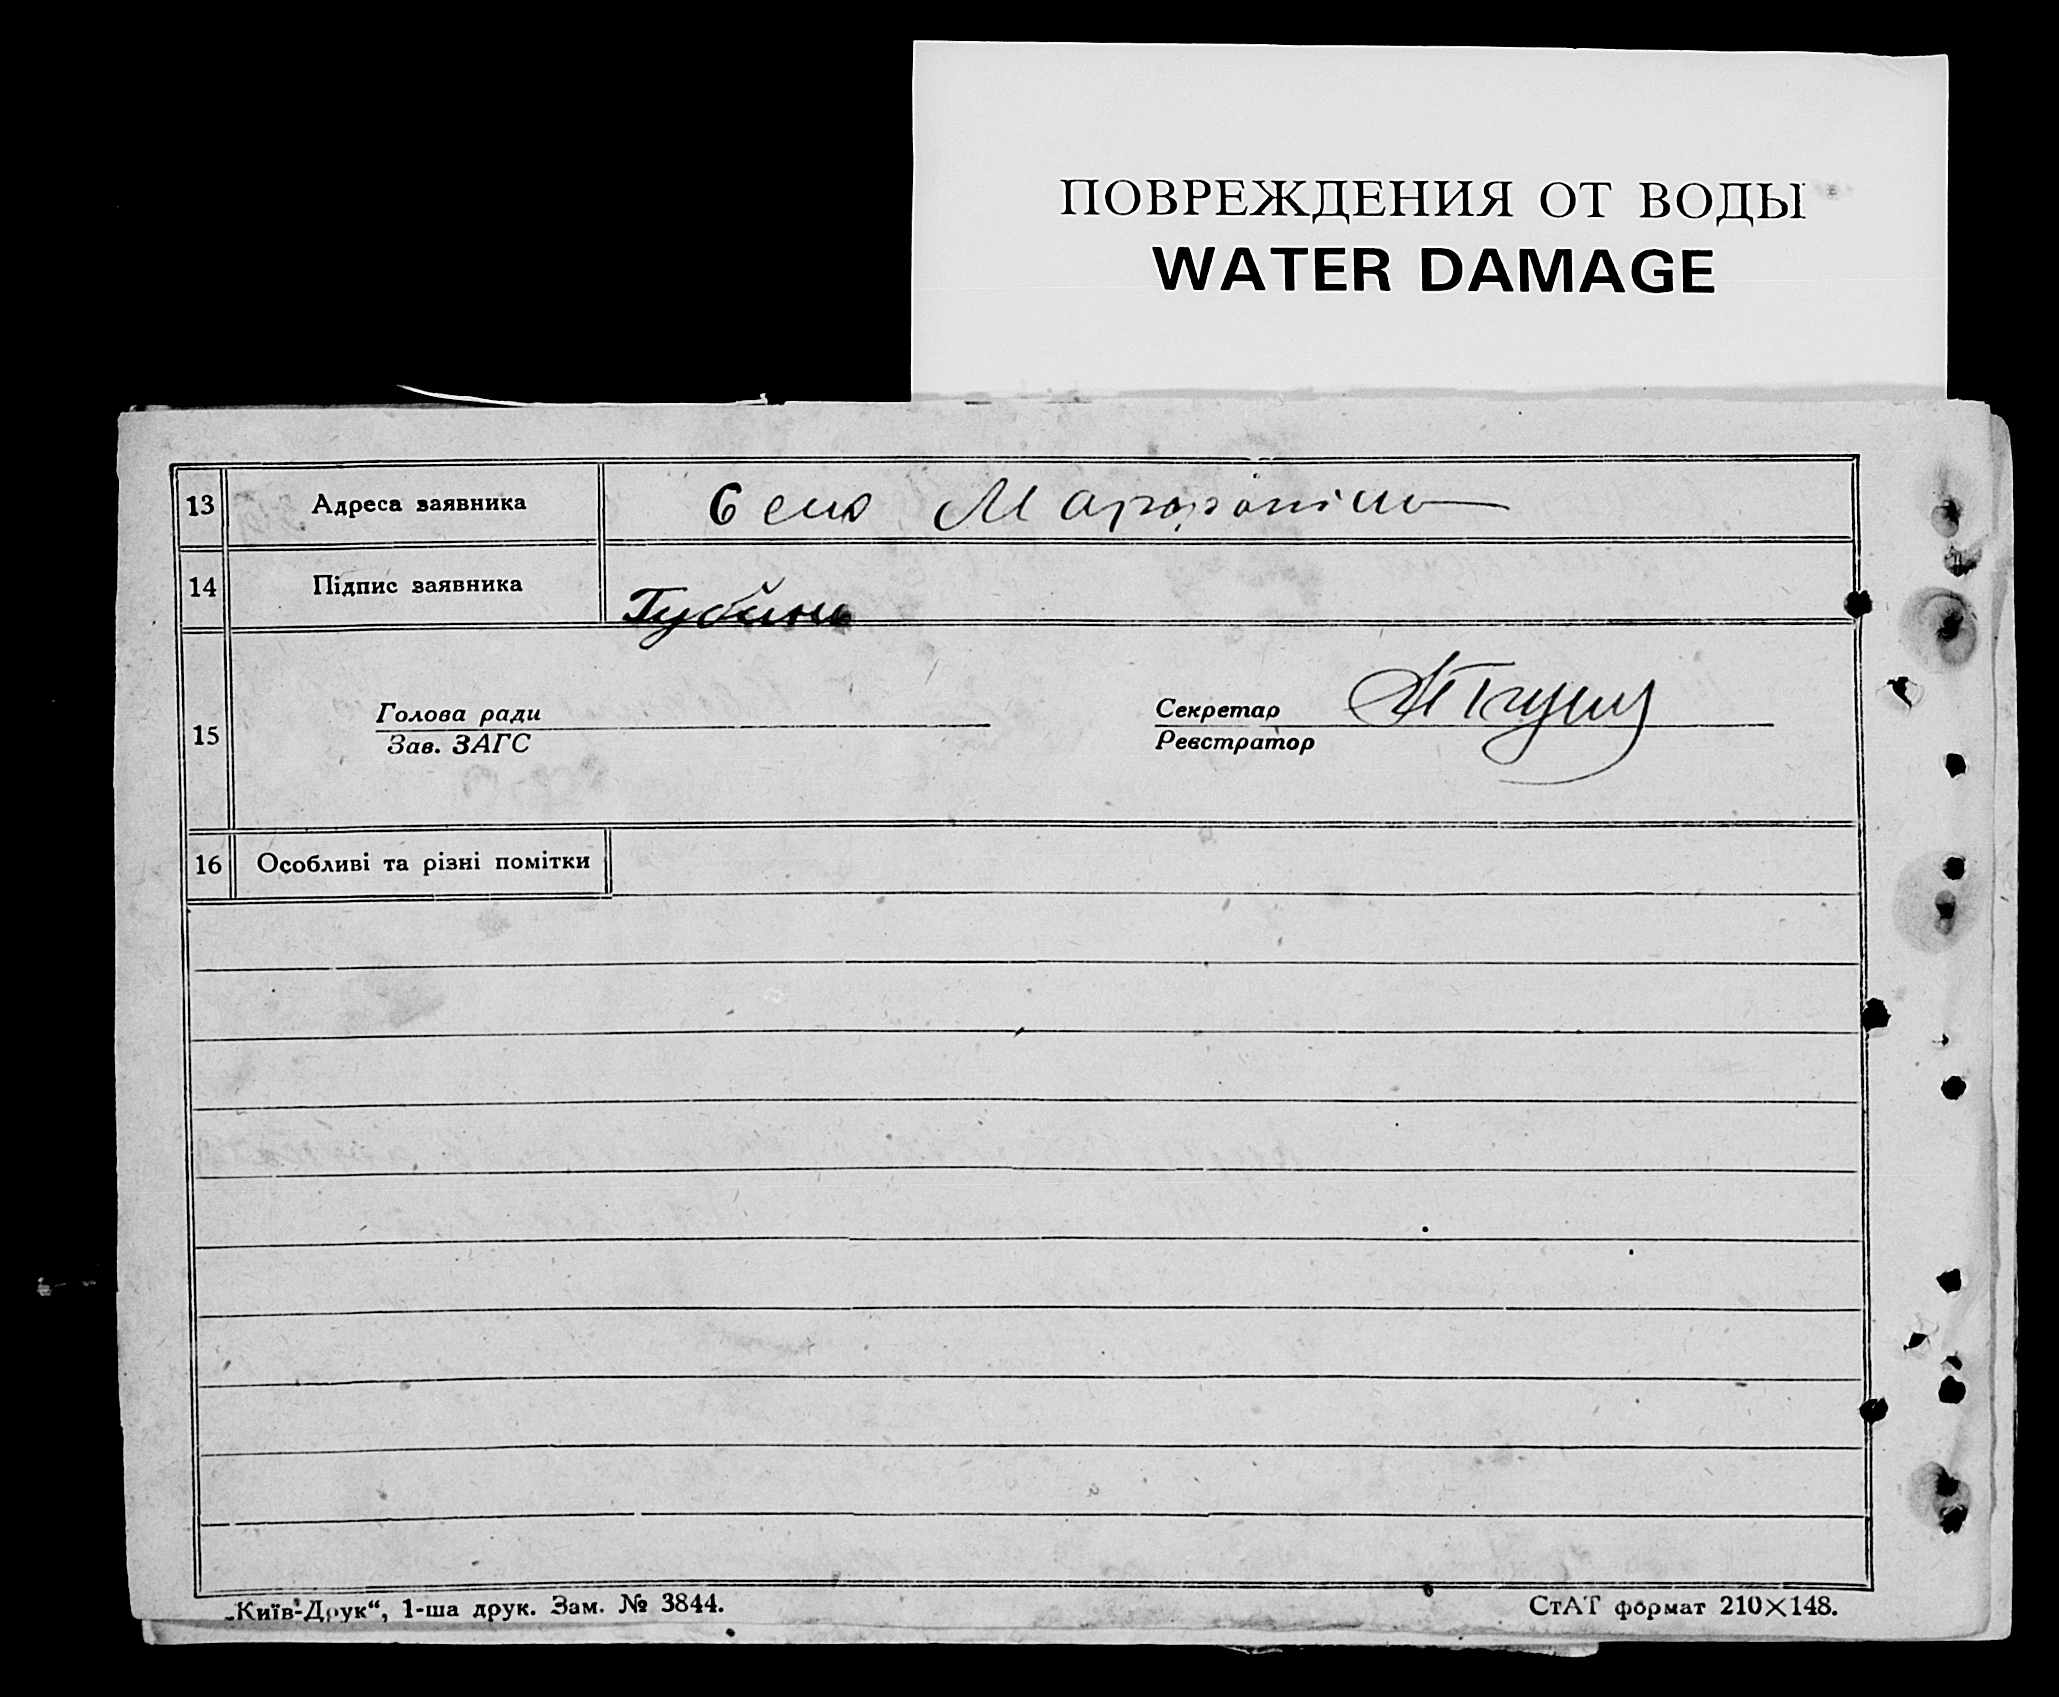 ПОВРЕЖДЕНИЯ ОТ ВОДЫ
WATER DAMAGE
13 Адреса заявника Село
14 Підпис заявника Губинь
15 Голова ради Секретар
Зав. ЗАГС Реєстратор
16 Особливі та різні помітки
„Київ-Друк“, 1-ша друк. Зам. № 3844. СтАТ формат 210×148.